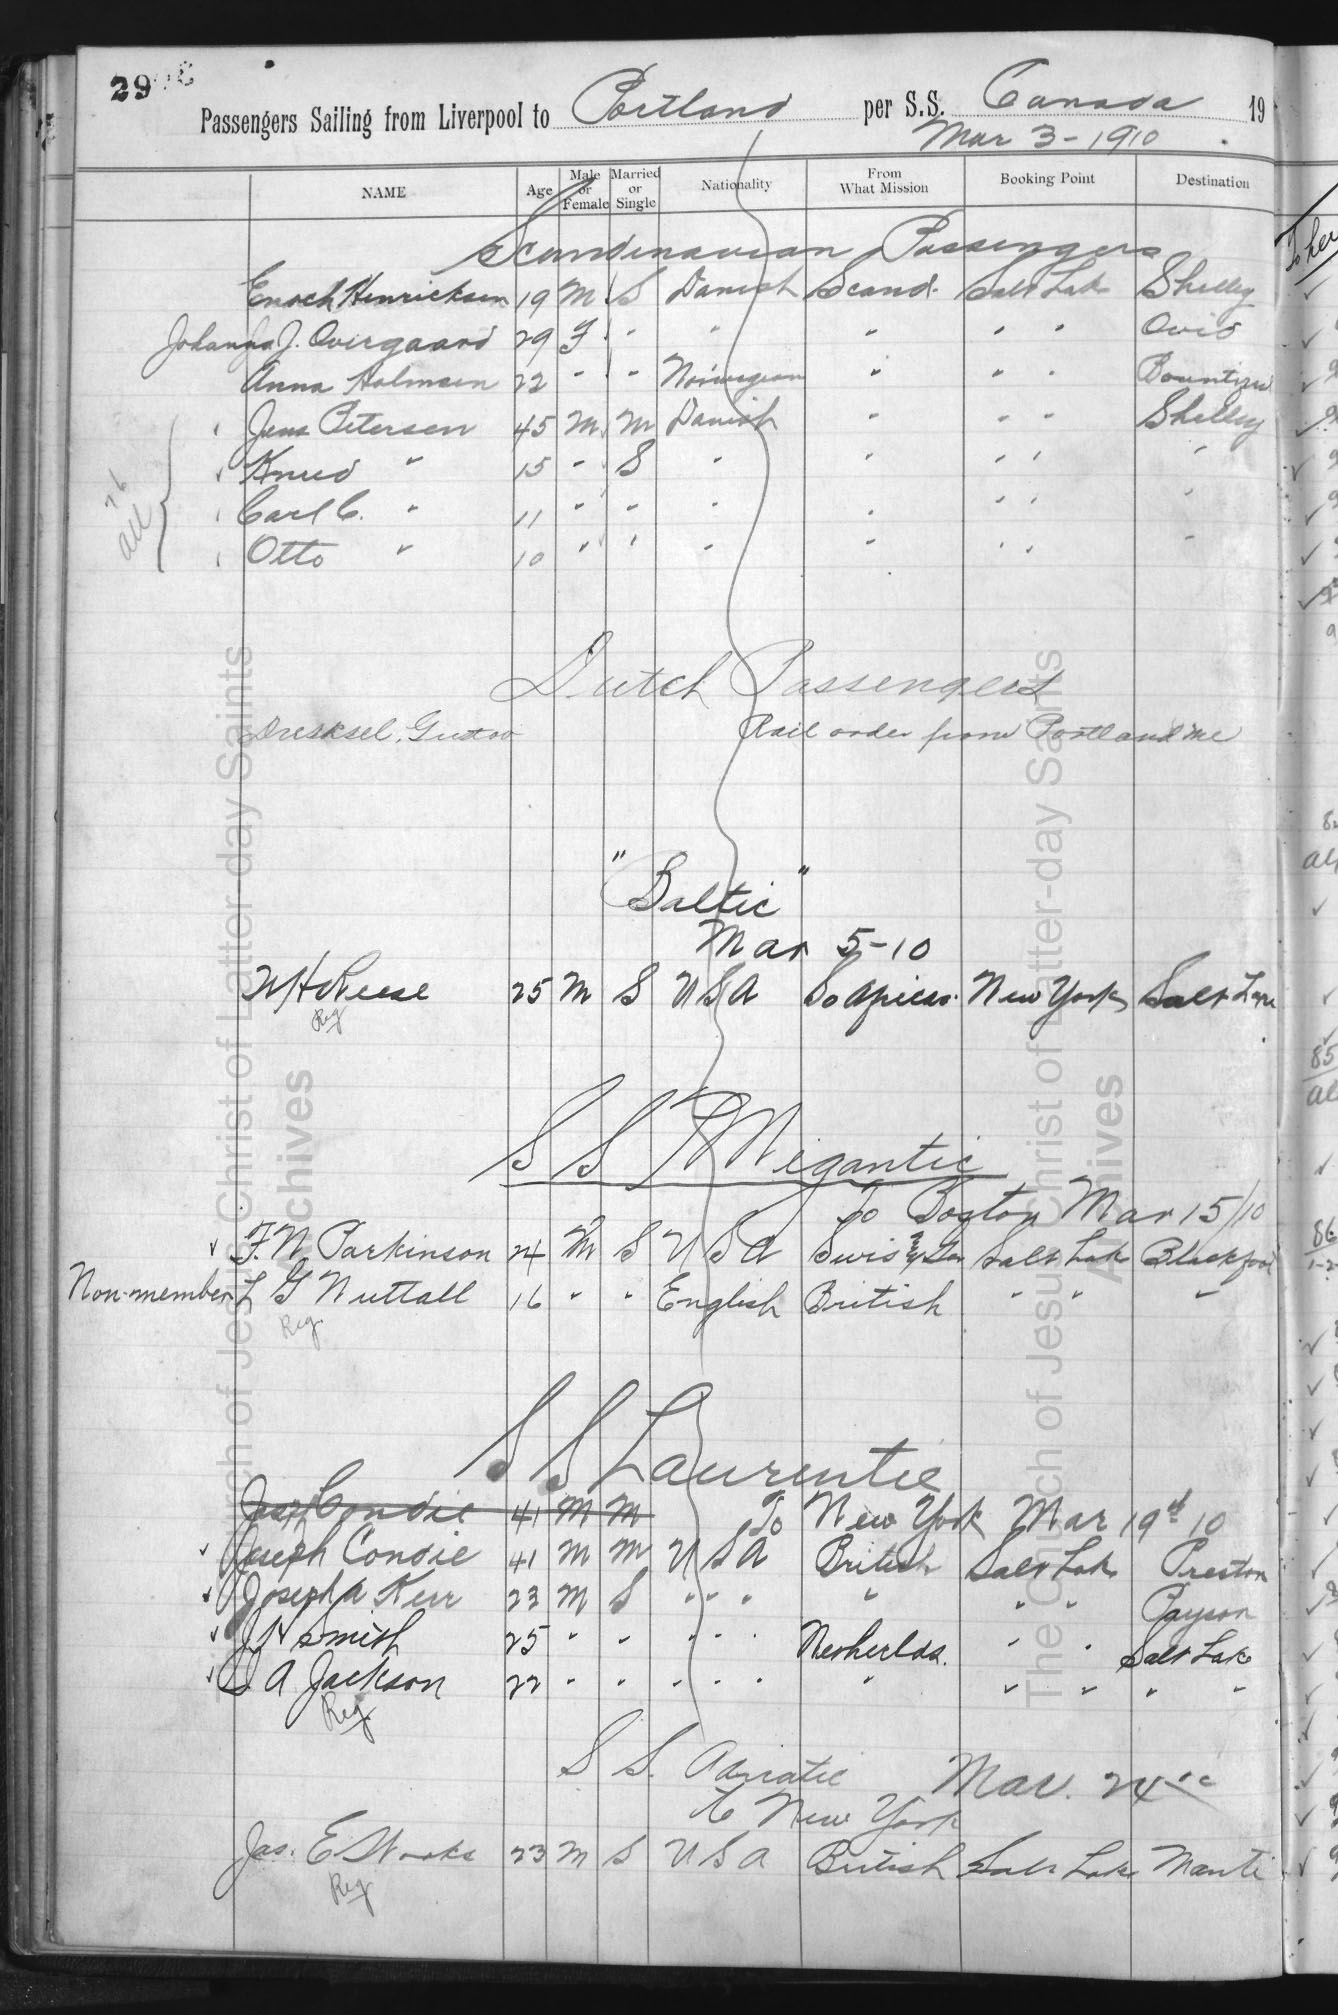 29
Passengers Sailing from Liverpool to Portland per S.S. Canada 19
Mar 3-1910
NAME Age Male or Female Married or Single Nationality From What Mission Booking Point Destination
Scandinavian Passengers
Enoch Henricksen 19 M S Danish Scand. Salt Lake Shelley
Johanna J. Overgaard 29 F " " " " " Ovid
Anna Holmsen 22 " " Norwegian " " " Bountiful
Jens Petersen 45 M M Danish " " " Shelley
Knud " 15 " S " " " " "
Carl C. " 11 " " " " " " "
Otto " 10 " " " " " " "
all
Dutch Passengers
Dresksel, Gustav Rail order from Portland Me
"Baltic"
Mar 5-10
W H Reese 25 M S U S A So African New York Salt Lake
Reg
S S Megantic
To Boston Mar 15/10
F. N. Parkinson 24 M S U S A Swis & Ger Salt Lake Blackfoot
Non-member L G Nuttall 16 " " English British " " "
Reg
S S Laurentic
Jos Condie 41 M M To New York Mar 19th 10
Joseph Condie 41 M M U S A British Salt Lake Preston
Joseph A Kerr 23 M S " " " " " " Payson
J H Smith 25 " " " " " Netherlds. " " Salt Lake
S A Jackson 22 " " " " " " " " " "
Reg
S S. Adriatic Mar. 24
to New York
Jas. E Works 23 M S U S A British Salt Lake Manti
Reg
The Church of Jesus Christ of Latter-day Saints
Archives
The Church of Jesus Christ of Latter-day Saints
Archives